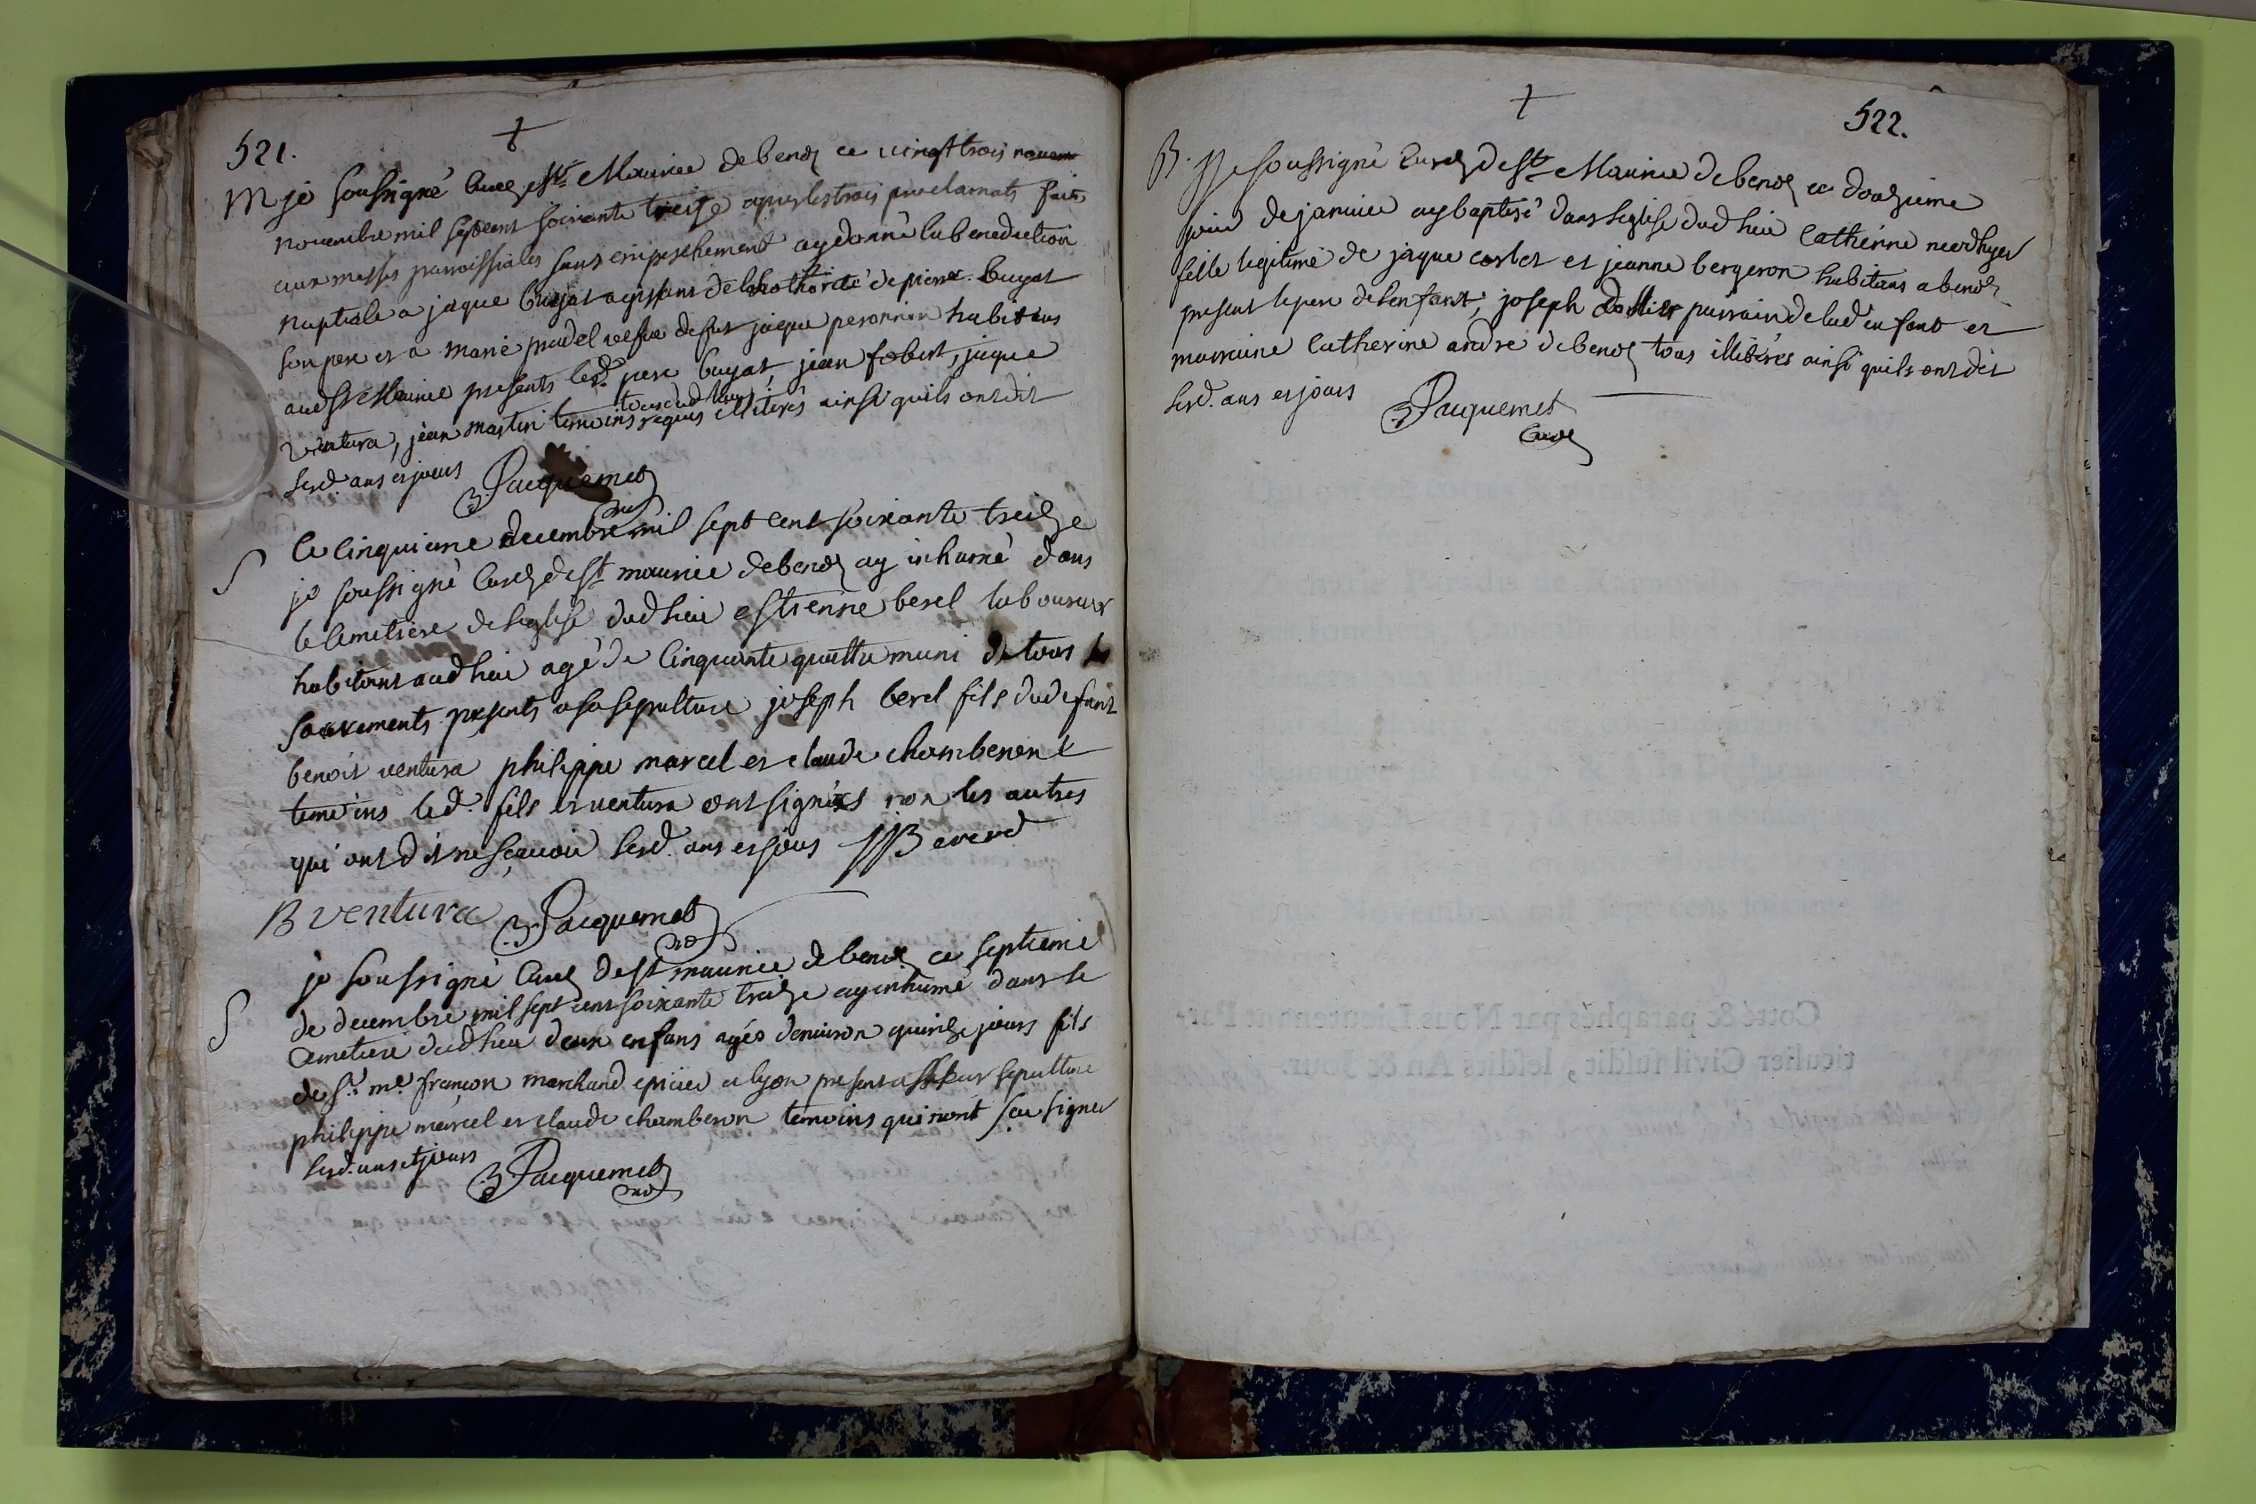 521.
M je soussigné Curé de St Maurice de benost ce vingt trois novem
novembre mil sept cent soixante treise apres les trois proclamats faits
aux messes parroissiales sans empeschement ay donné la benediction
nuptiale a jaque buyat agissant de lhothorité de pierre buyat
son pere et a marie pradel vefve de fut jaque peronnin habitans
aud St Maurice presents led. pere buyat, jean fobert, jaque
ventura, jean martin temoins requis illiterés ainsi quils ont dit
lesd. ans et jours
Jacquemet
curé
S
Ce Cinquieme decembre mil sept cent soixante treilze
je soussigné Curé de St maurice de benost ay inhumé dans
le Cimetiere de leglise dud lieu estienne berel laboureur
habitant aud lieu agé de Cinquante quattre muni de tous les
sacrements presents a sa sepulture joseph berel fils dud defunt
benoit ventura philippe marcel et claude chamberon
temoins led. fils et ventura ont signés non les autres
qui ont dit ne sçavoir lesd. ans et jours JJ Bererd
B ventura Jacquemet
curé
S
je soussigné Curé de St maurice de benost ce septieme
de decembre mil sept cent soixante treilze ay inhumé dans le
Cimetiere dud lieu deux enfans agés denviron quinze jours fils
de Sr. me. françon marchand epicier a lyon present a leur sepulture
philippe marcel et claude chamberon temoins qui n'ont sçu signer
lesd. ans et jours
Jacquemet
curé
522.
B. Je soussigné Curé de St Maurice de benost ce douzieme
jour de janvier ay baptisé dans leglise dud lieu Catherine neé d'hyer
fille legitime de jaque carlet et jeanne bergeron habitans a benost
present le pere de l'enfant, joseph parrain de lad enfant et
marraine Catherine andre de benost tous illiterés ainsi quils ont dit
lesd. ans et jours
Jacquemet
Curé
Cotté & paraphés par Nous Lieutenant Par-
ticulier Civil susdit, lesdits An & Jour.